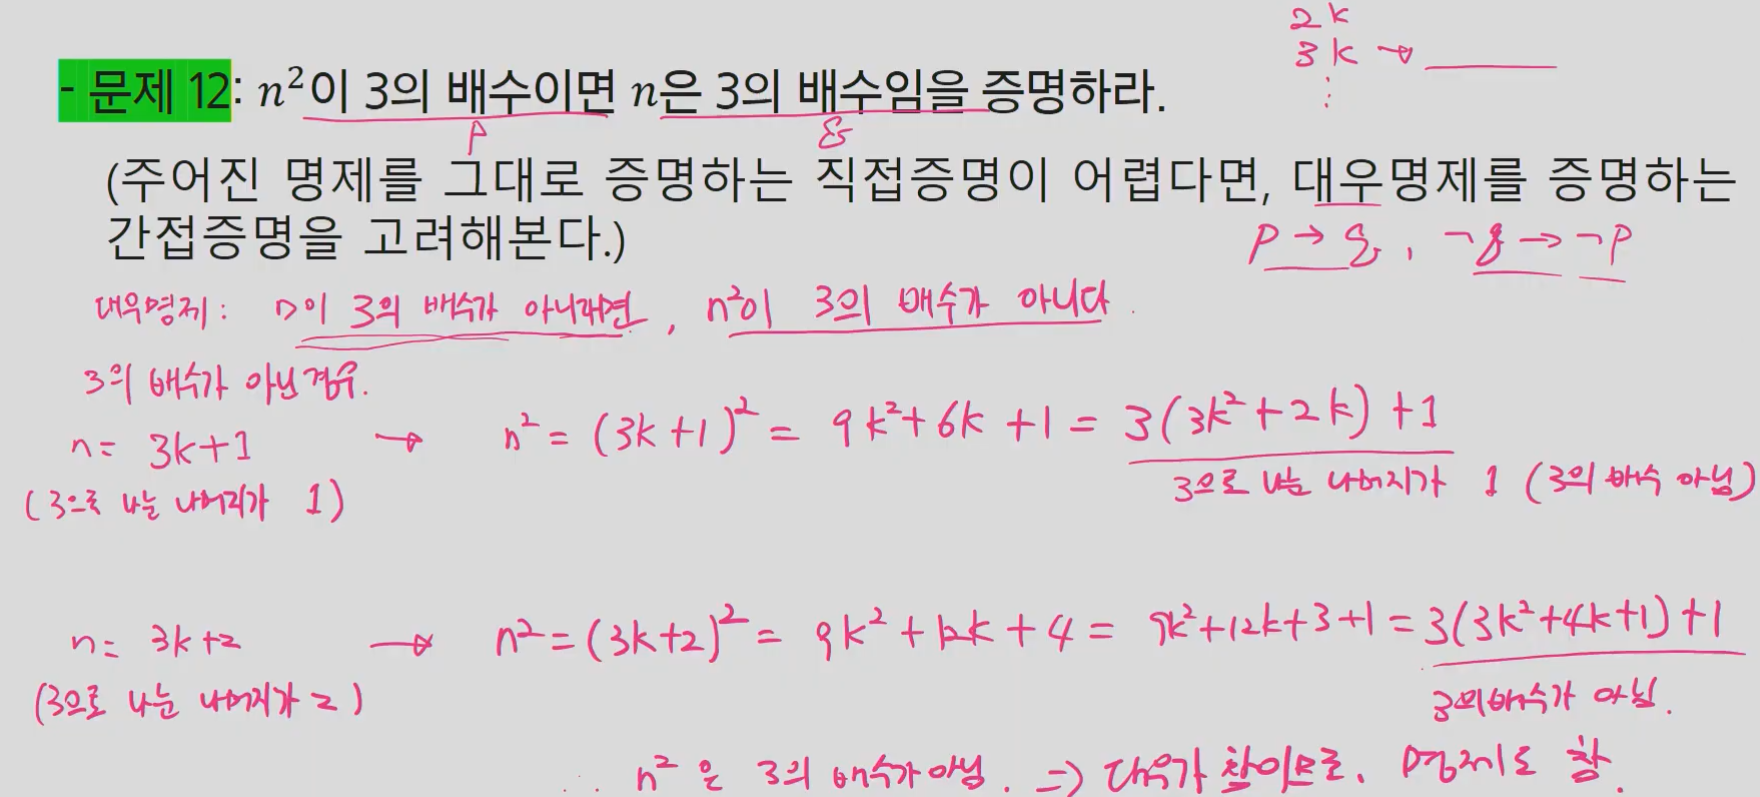 2k
3k →
⋮
- 문제 12: n²이 3의 배수이면 n은 3의 배수임을 증명하라.
p q
(주어진 명제를 그대로 증명하는 직접증명이 어렵다면, 대우명제를 증명하는
간접증명을 고려해본다.)
p → q, ¬q → ¬p
대우명제: n이 3의 배수가 아니라면, n²이 3의 배수가 아니다.
3의 배수가 아닌 경우.
n = 3k+1 → n² = (3k+1)² = 9k²+6k+1 = 3(3k²+2k)+1
(3으로 나눈 나머지가 1) 3으로 나눈 나머지가 1 (3의 배수 아님)
n = 3k+2 → n² = (3k+2)² = 9k²+12k+4 = 9k²+12k+3+1 = 3(3k²+4k+1)+1
(3으로 나눈 나머지가 2) 3의 배수가 아님.
∴ n²은 3의 배수가 아님. ⇒ 대우가 참이므로, 명제도 참.